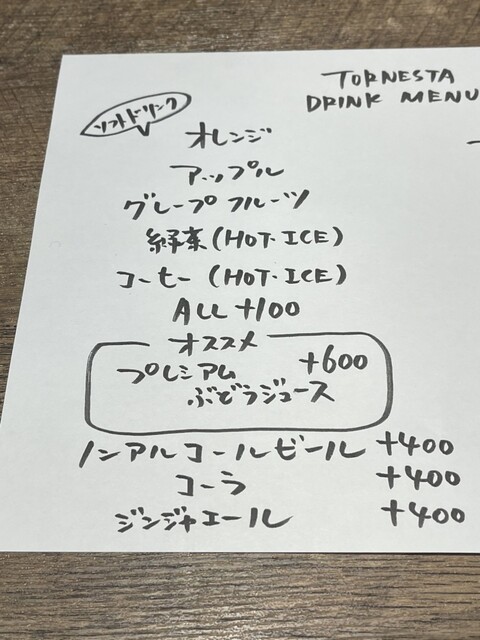 TORNESTA
DRINK MENU
ソフトドリンク
オレンジ
アップル
グレープフルーツ
緑茶(HOT・ICE)
コーヒー(HOT・ICE)
ALL +100
オススメ
プレミアム +600
ぶどうジュース
ノンアルコールビール +400
コーラ +400
ジンジャエール +400